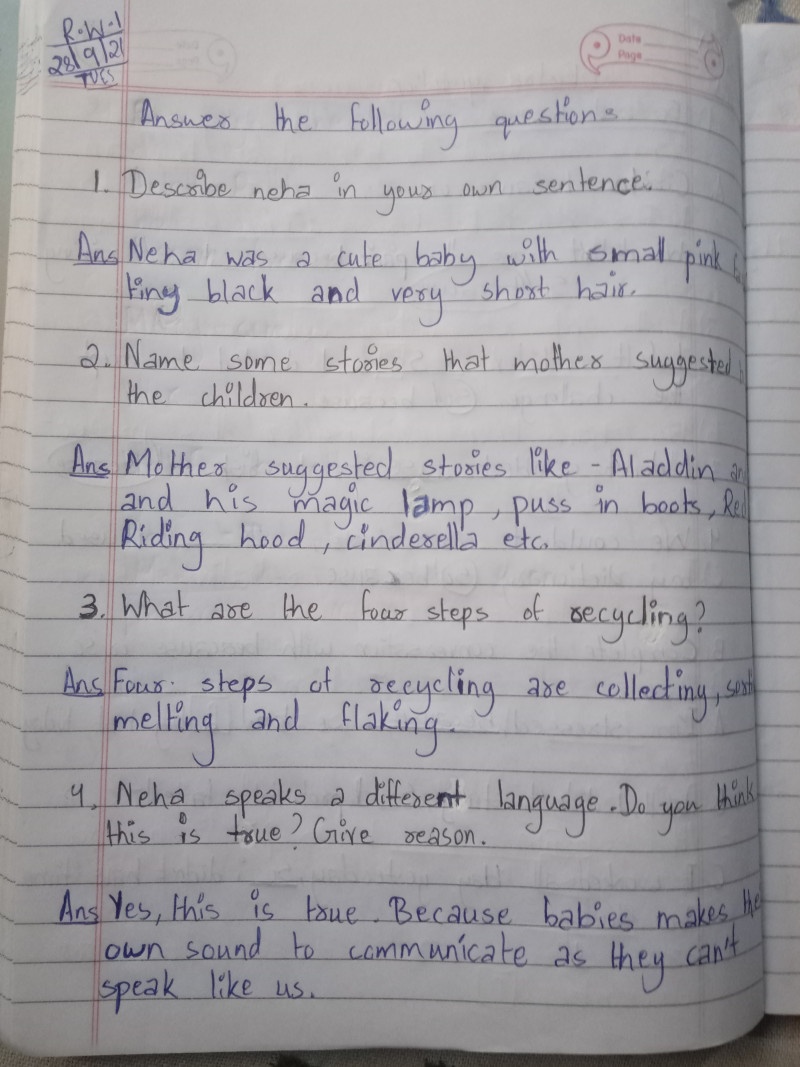 R.W.1
28/9/21
TUES
Date
Page
Answer the following questions
1. Describe neha in your own sentence.
Ans Neha was a cute baby with small pink
tiny black and very short hair.
2. Name some stories that mother suggested
the children.
Ans Mother suggested stories like - Aladdin
and his magic lamp, puss in boots, Red
Riding hood, cinderella etc.
3. What are the four steps of recycling?
Ans Four steps of recycling are collecting,
melting and flaking.
4. Neha speaks a different language. Do you think
this is true? Give reason.
Ans Yes, this is true. Because babies makes
own sound to communicate as they can't
speak like us.